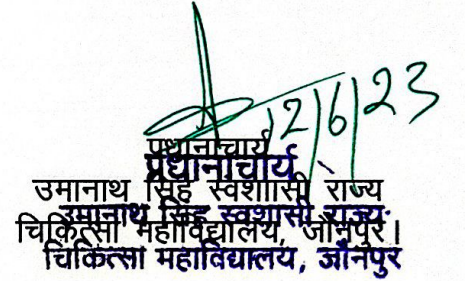 12/6/23
प्रधानाचार्य
प्रधानाचार्य
उमानाथ सिंह स्वशासी राज्य
उमानाथ सिंह स्वशासी राज्य
चिकित्सा महाविद्यालय, जौनपुर।
चिकित्सा महाविद्यालय, जौनपुर